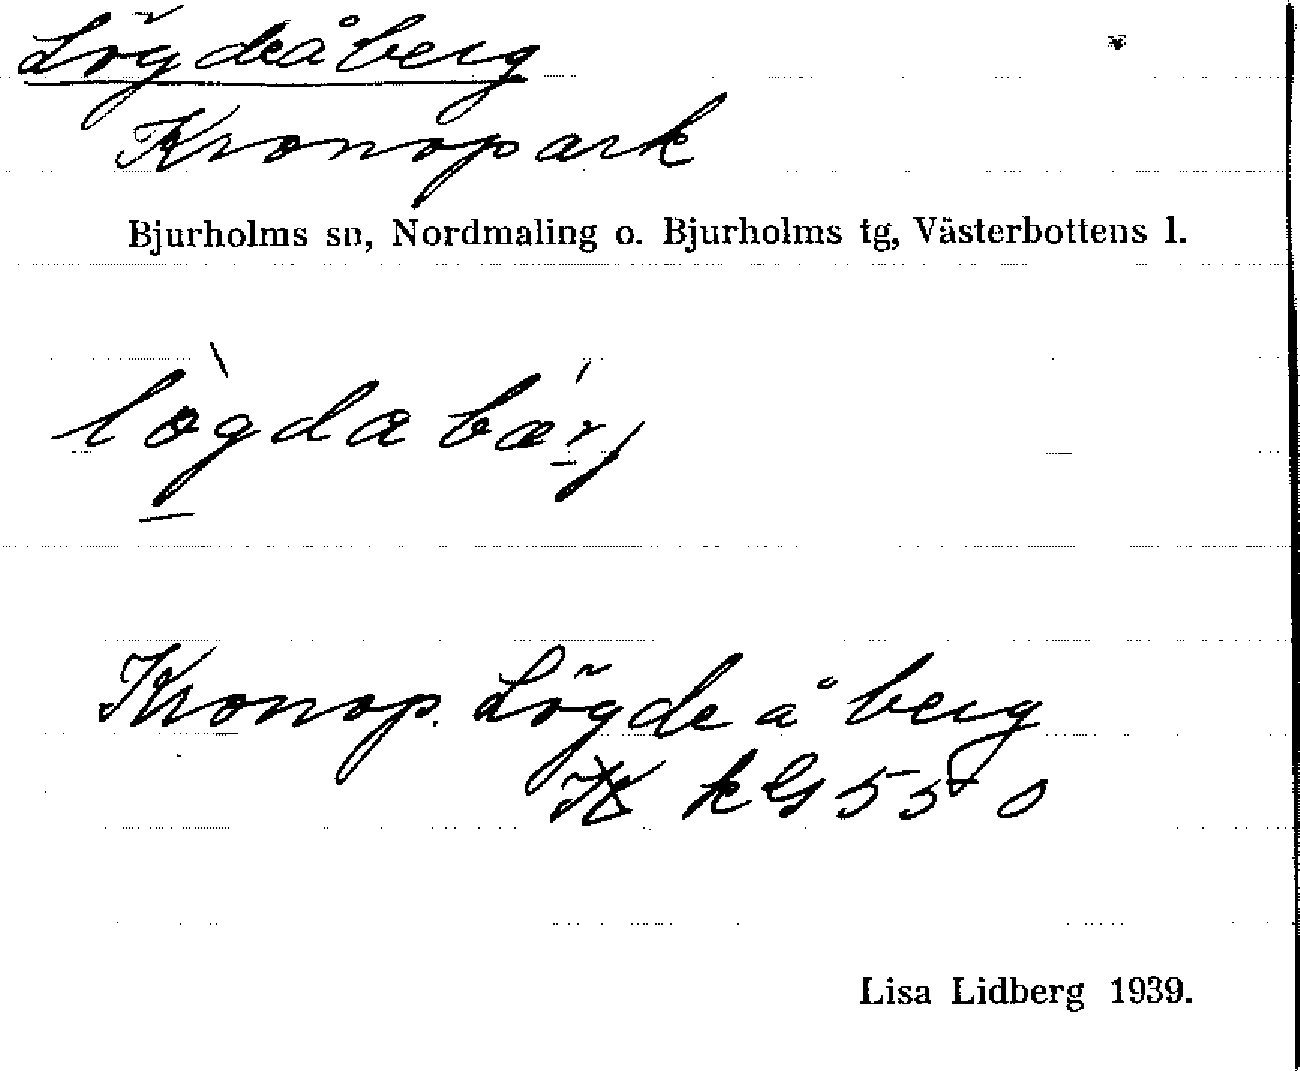 Lögdeåberg
Kronopark
Bjurholms sn, Nordmaling o. Bjurholms tg, Västerbottens l.
lø̀gdabær´j
Kronop. Lögdeåberg
kG 550
Lisa Lidberg 1939.